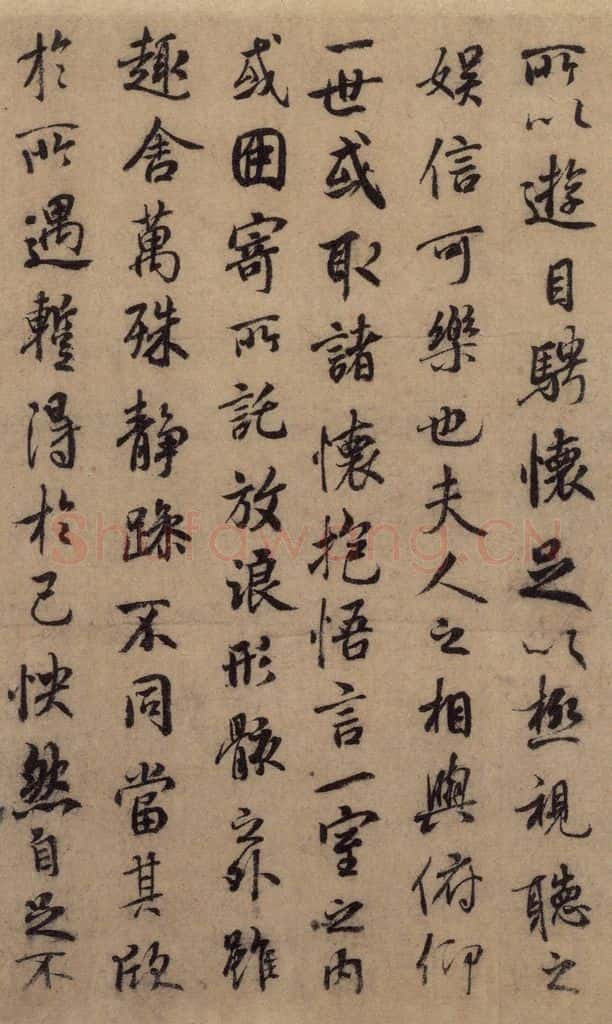 所以遊目騁懷足以極視聽之
娛信可樂也夫人之相與俯仰
一世或取諸懷抱悟言一室之內
或因寄所託放浪形骸之外雖
趣舍萬殊静躁不同當其欣
於所遇暫得於己怏然自足不
Shufawang.CN